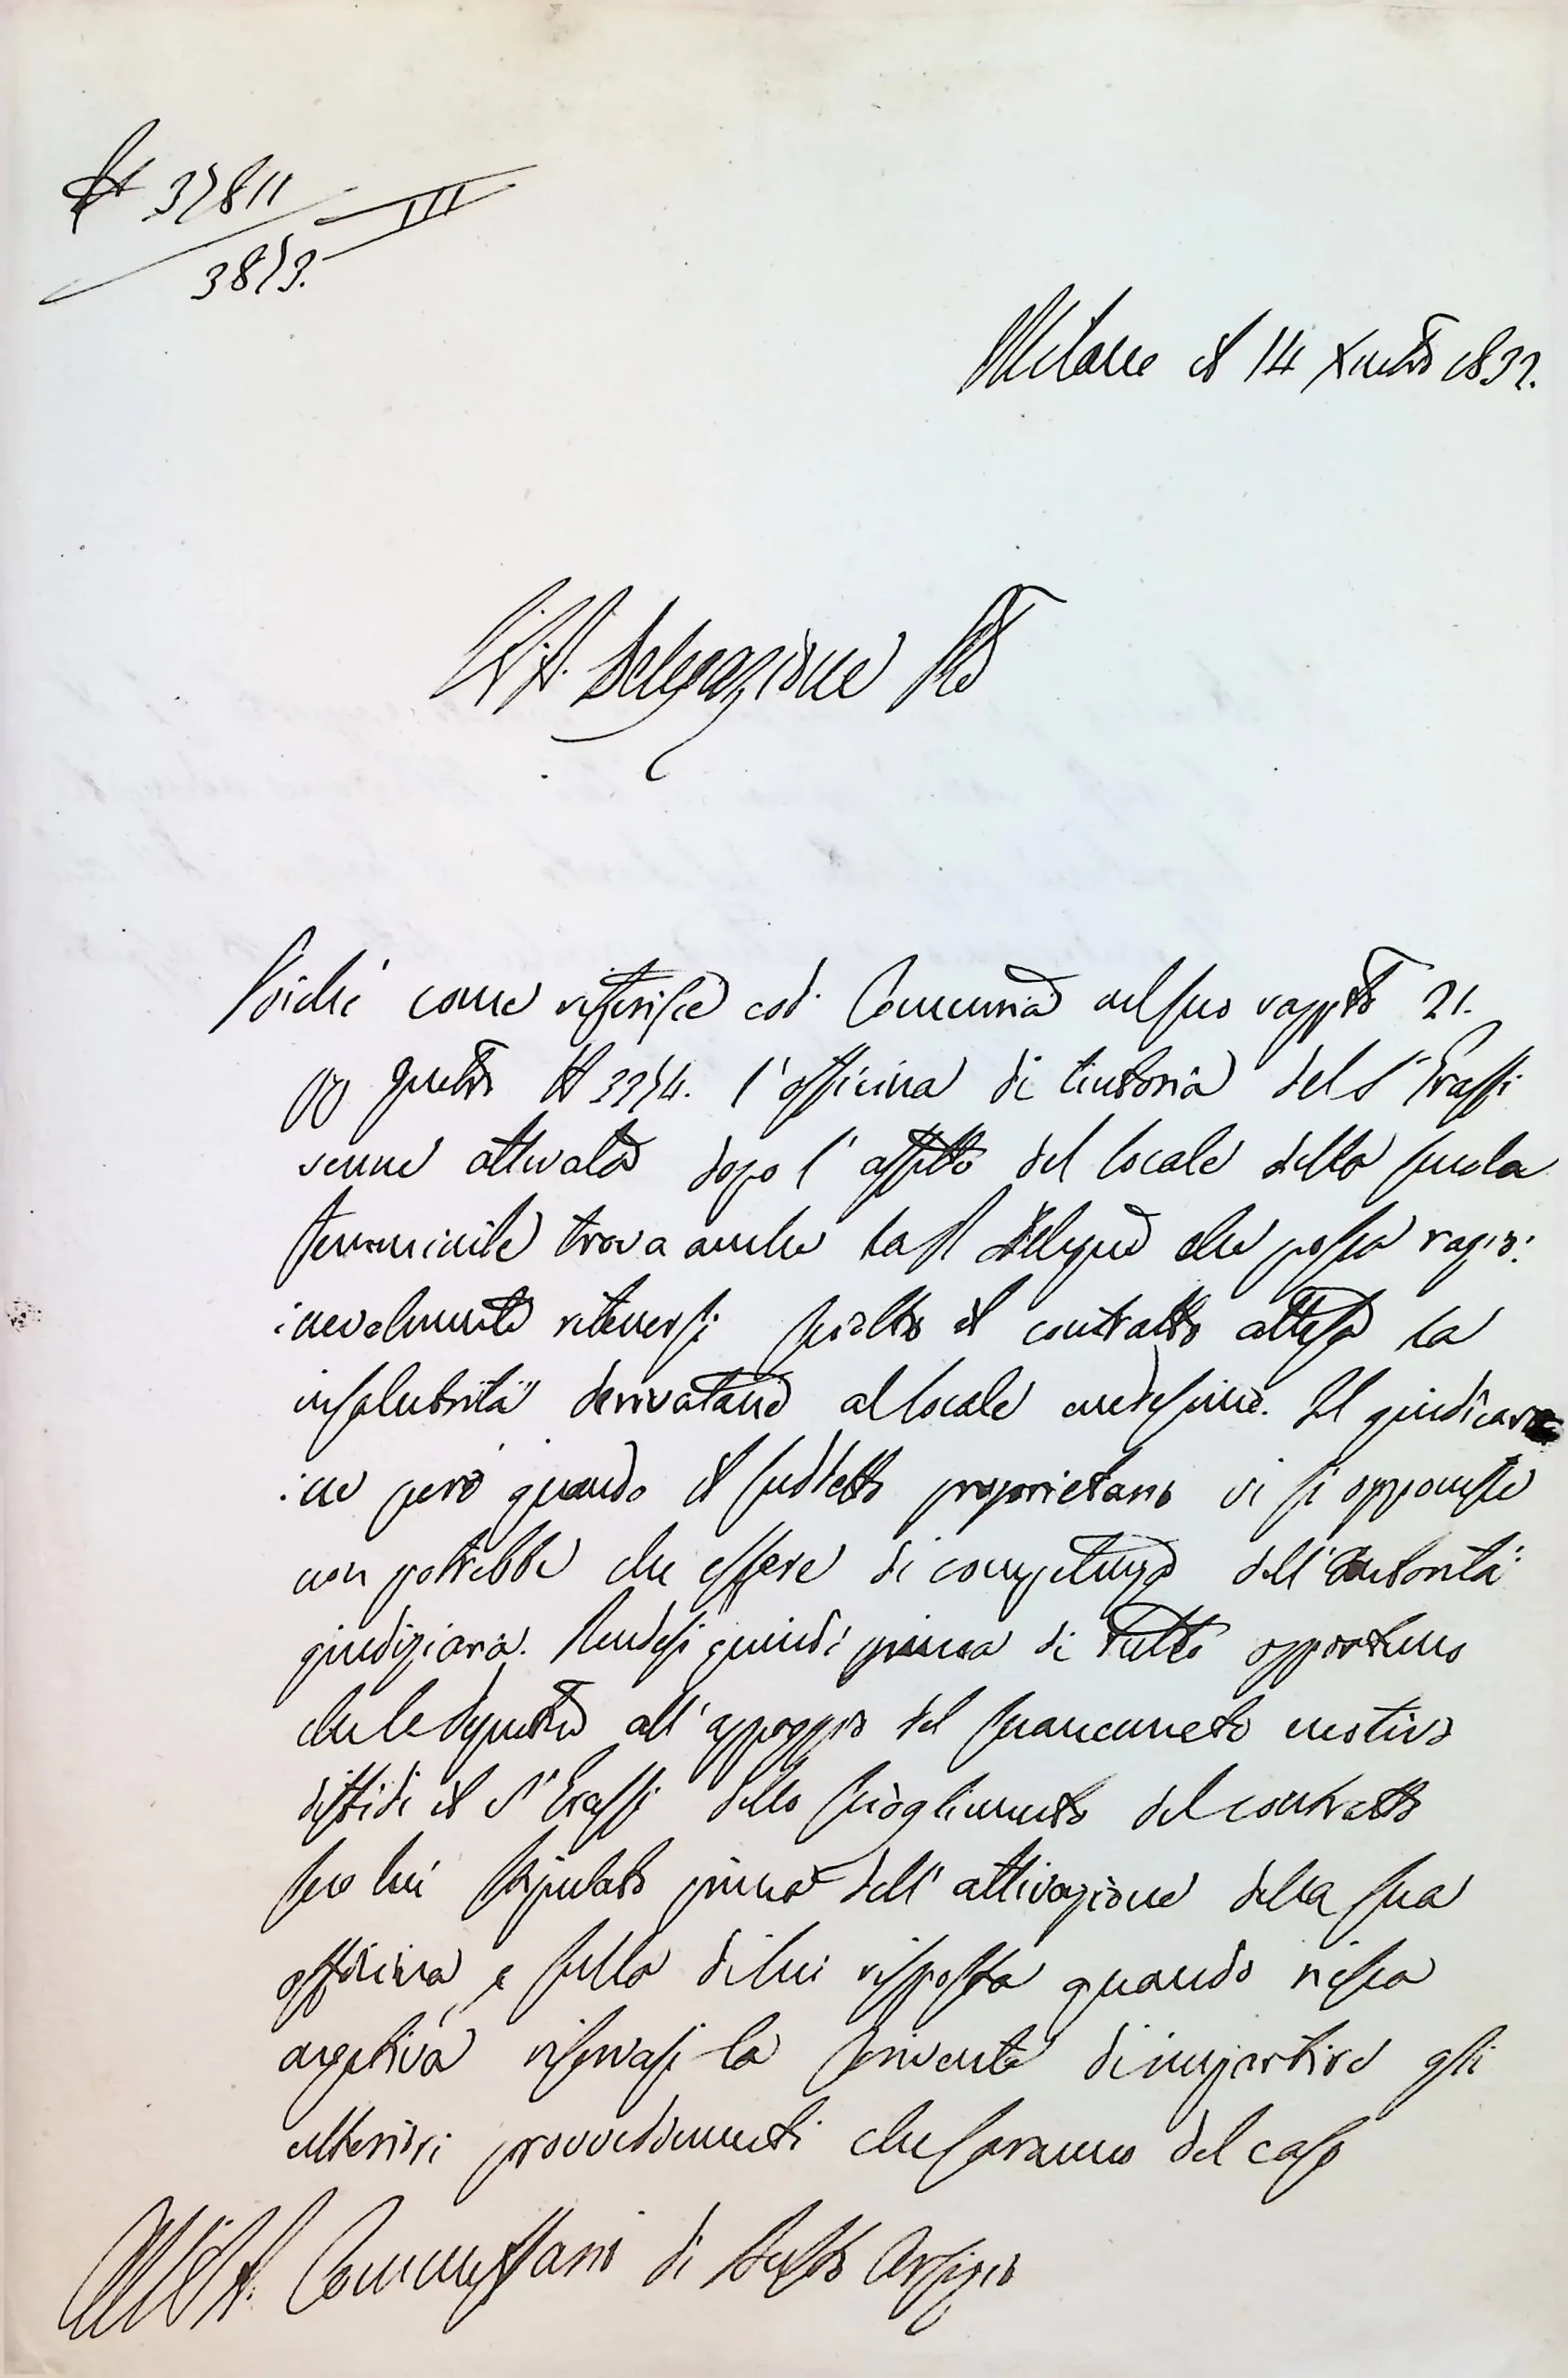 N 32811
3873. III
Milano il 14 Xmbre 1832.
L'I. R. Delegazione Ple
Poichè come riferisce cod. Commissa nel suo rappto 21.
pp N 3274. l'officina di tintoria del Sr Crassi
venne attivata dopo l'affitto del locale della scuola
femminile trova anche la R. Delegne che possa ragio:
:nevolmente ritenersi sciolto il contratto attesa la
insalubrità derivatane al locale medesimo. Il giudicar
:ne però quando il suddetto proprietario vi si opponesse
non potrebbe che essere di competenza dell'Autorità
giudiziaria. Rendesi quindi prima di tutto opportuno
che le all'appoggio del motivo
diffidi il Sr Crassi dello scioglimento del contratto
seco lui stipulato prima dell'attivazione della sua
officina e sulla di lui risposta quando riesca
negativa riservasi la scrivente d'impartire gli
ulteriori provvedimenti che saranno del caso
All'I. R. Commissario di Busto Arsizio